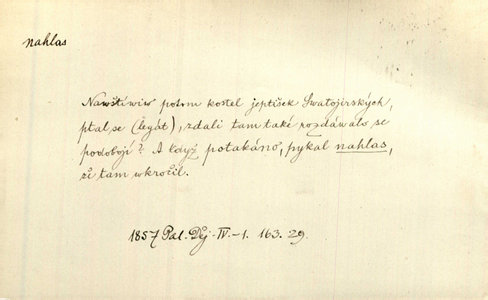 nahlas
Nawštíwiw potom kostel jeptišek Swatojirských,
ptal se (legát), zdali tam také rozdáwalo se
podobojí? A když potakáno, pykal nahlas,
že tam wkročil.
1857 Pal. Děj. IV-1. 163. 29.